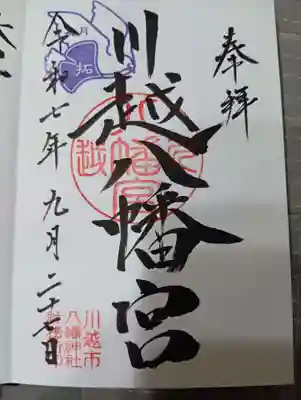 奉拝
川越八幡宮
令和七年九月二十七日
川越市
八幡神社